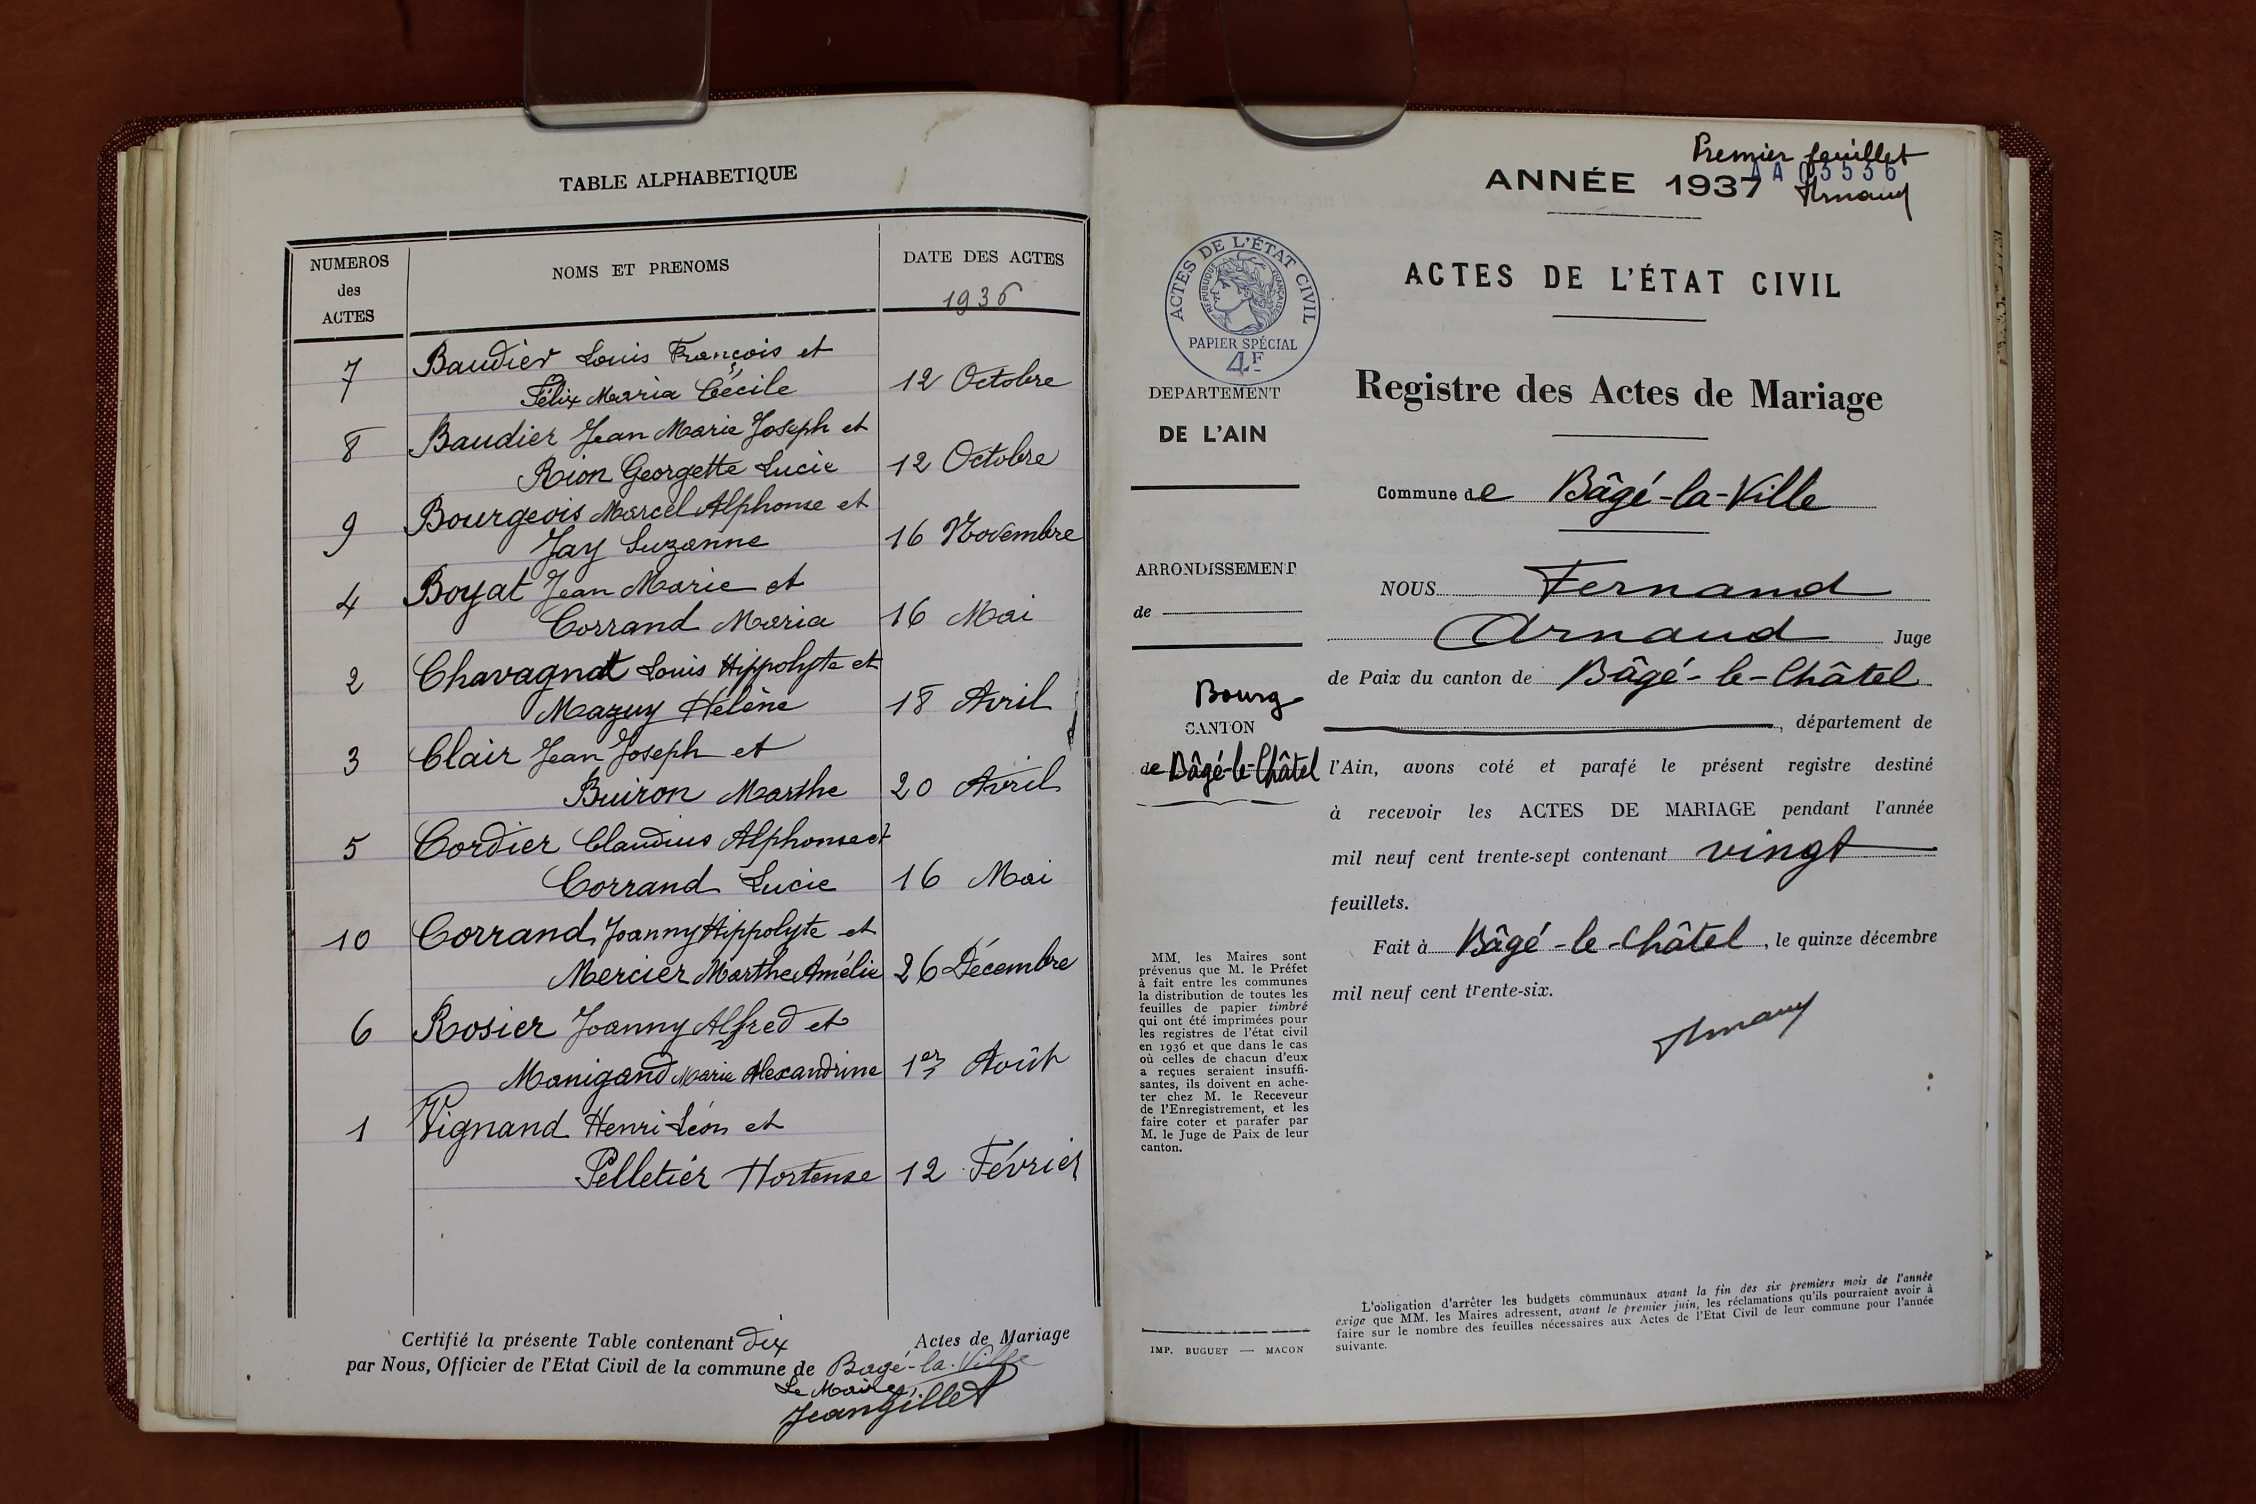 TABLE ALPHABETIQUE
NUMEROS
des
ACTES
NOMS ET PRENOMS
DATE DES ACTES
1936
7 Baudier Louis François et
Félix Maria Cécile 12 Octobre
8 Baudier Jean Marie Joseph et
Rion Georgette Lucie 12 Octobre
9 Bourgeois Marcel Alphonse et
Jay Suzanne 16 Novembre
4 Boyat Jean Marie et
Corrand Maria 16 Mai
2 Chavagnat Louis Hippolyte et
Mazuy Hélène 18 Avril
3 Clair Jean Joseph et
Buiron Marthe 20 Avril
5 Cordier Claudius Alphonse et
Corrand Lucie 16 Mai
10 Corrand Joanny Hippolyte et
Mercier Marthe Amélie 26 Décembre
6 Rosier Joanny Alfred et
Manigand Marie Alexandrine 1er Août
1 Vignand Henri Léon et
Pelletier Hortense 12 Février
Certifié la présente Table contenant dix Actes de Mariage
par Nous, Officier de l'Etat Civil de la commune de Bagé-la-Ville
Le Maire,
Jeangillet
Premier feuillet
AA 03536
ANNÉE 1937
Arnaud
ACTES DE L'ÉTAT CIVIL
RÉPUBLIQUE FRANÇAISE
PAPIER SPÉCIAL
4F
ACTES DE L'ÉTAT CIVIL
Registre des Actes de Mariage
DEPARTEMENT
DE L'AIN
Commune de Bâgé-la-Ville
ARRONDISSEMENT
de
Bourg
CANTON
de Bâgé-le-Châtel
NOUS Fernand
Arnaud Juge
de Paix du canton de Bâgé-le-Châtel
, département de
l'Ain, avons coté et parafé le présent registre destiné
à recevoir les ACTES DE MARIAGE pendant l'année
mil neuf cent trente-sept contenant vingt
feuillets.
Fait à Bâgé-le-Châtel, le quinze décembre
mil neuf cent trente-six.
Arnaud
MM. les Maires sont
prévenus que M. le Préfet
à fait entre les communes
la distribution de toutes les
feuilles de papier timbré
qui ont été imprimées pour
les registres de l'état civil
en 1936 et que dans le cas
où celles de chacun d'eux
a reçues seraient insuffi-
santes, ils doivent en ache-
ter chez M. le Receveur
de l'Enregistrement, et les
faire coter et parafer par
M. le Juge de Paix de leur
canton.
IMP. BUGUET — MACON
L'obligation d'arrêter les budgets communaux avant la fin des six premiers mois de l'année
exige que MM. les Maires adressent, avant le premier juin, les réclamations qu'ils pourraient avoir à
faire sur le nombre des feuilles nécessaires aux Actes de l'Etat Civil de leur commune pour l'année
suivante.